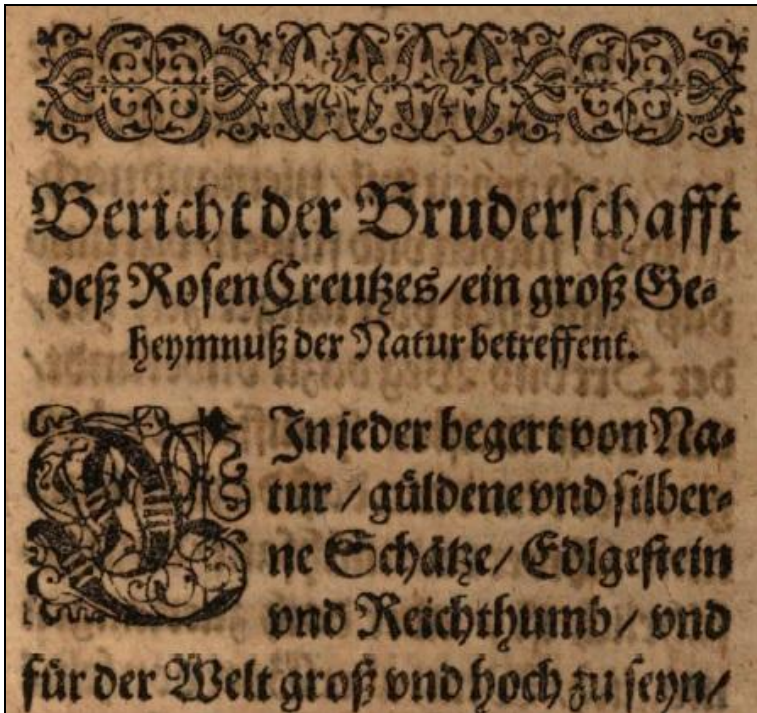 Bericht der Bruderschafft
deß RosenCreutzes/ein groß Ge-
heymnuß der Natur betreffent.
EIn jeder begert von Na-
tur / güldene vnd silber-
ne Schätze/ Edlgestein
vnd Reichthumb / vnd
für der Welt groß vnd hoch zu seyn/